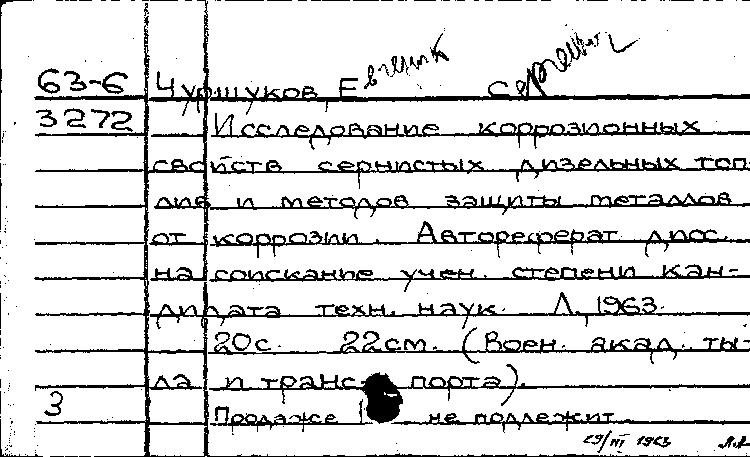 63-6 Чуршуков, Е Сергеевич
3272 Исследование коррозионных
свойств сернистых дизельных топ-
лив и методов защиты металлов
от коррозии. Автореферат дисс.
на соискание учен. степени кан-
дидата техн. наук. Л., 1963.
20с. 22см. (Воен. акад. ты-
ла и транс- порта).
3 Продаже не подлежит
29/III 1963